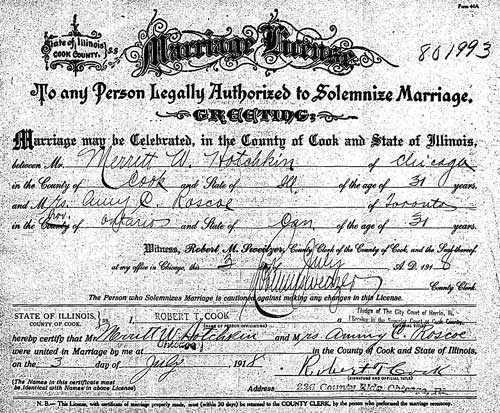 Form 44A
State of Illinois
COOK COUNTY. SS
Marriage License
801993
To any Person Legally Authorized to Solemnize Marriage.
GREETING:
Marriage may be Celebrated, in the County of Cook and State of Illinois,
between Mr. Merritt W. Hotchkin of Chicago
in the County of Cook and State of Ill. of the age of 31 years,
and Mrs. Amy C. Roscoe of Toronto
in the County Prov. of Ontario and State of Can. of the age of 31 years.
Witness, Robert M. Sweitzer, County Clerk of the County of Cook, and the Seal thereof,
at my office in Chicago, this 3 day of July A. D. 1918
Robert M Sweitzer County Clerk.
The Person who Solemnizes Marriage is cautioned against making any changes in this License.
STATE OF ILLINOIS, COUNTY OF COOK. ss I ROBERT T. COOK Judge of The City Court of Herrin, Ill.
hereby certify that Mr. Merritt W. Hotchkin and Mrs Ammy C. Roscoe
were united in Marriage by me at Chicago in the County of Cook and State of Illinois,
on the 3 day of July 1918
Robert T Cook
(The Names in this certificate must be identical with Names in above License)
(SIGNATURE AND OFFICIAL TITLE)
Address 226 County Bldg. Chicago, Ill
N. B.—This License, with certificate of marriage properly made, must (within 30 days) be returned to the COUNTY CLERK, by the person who performed the marriage ceremony.